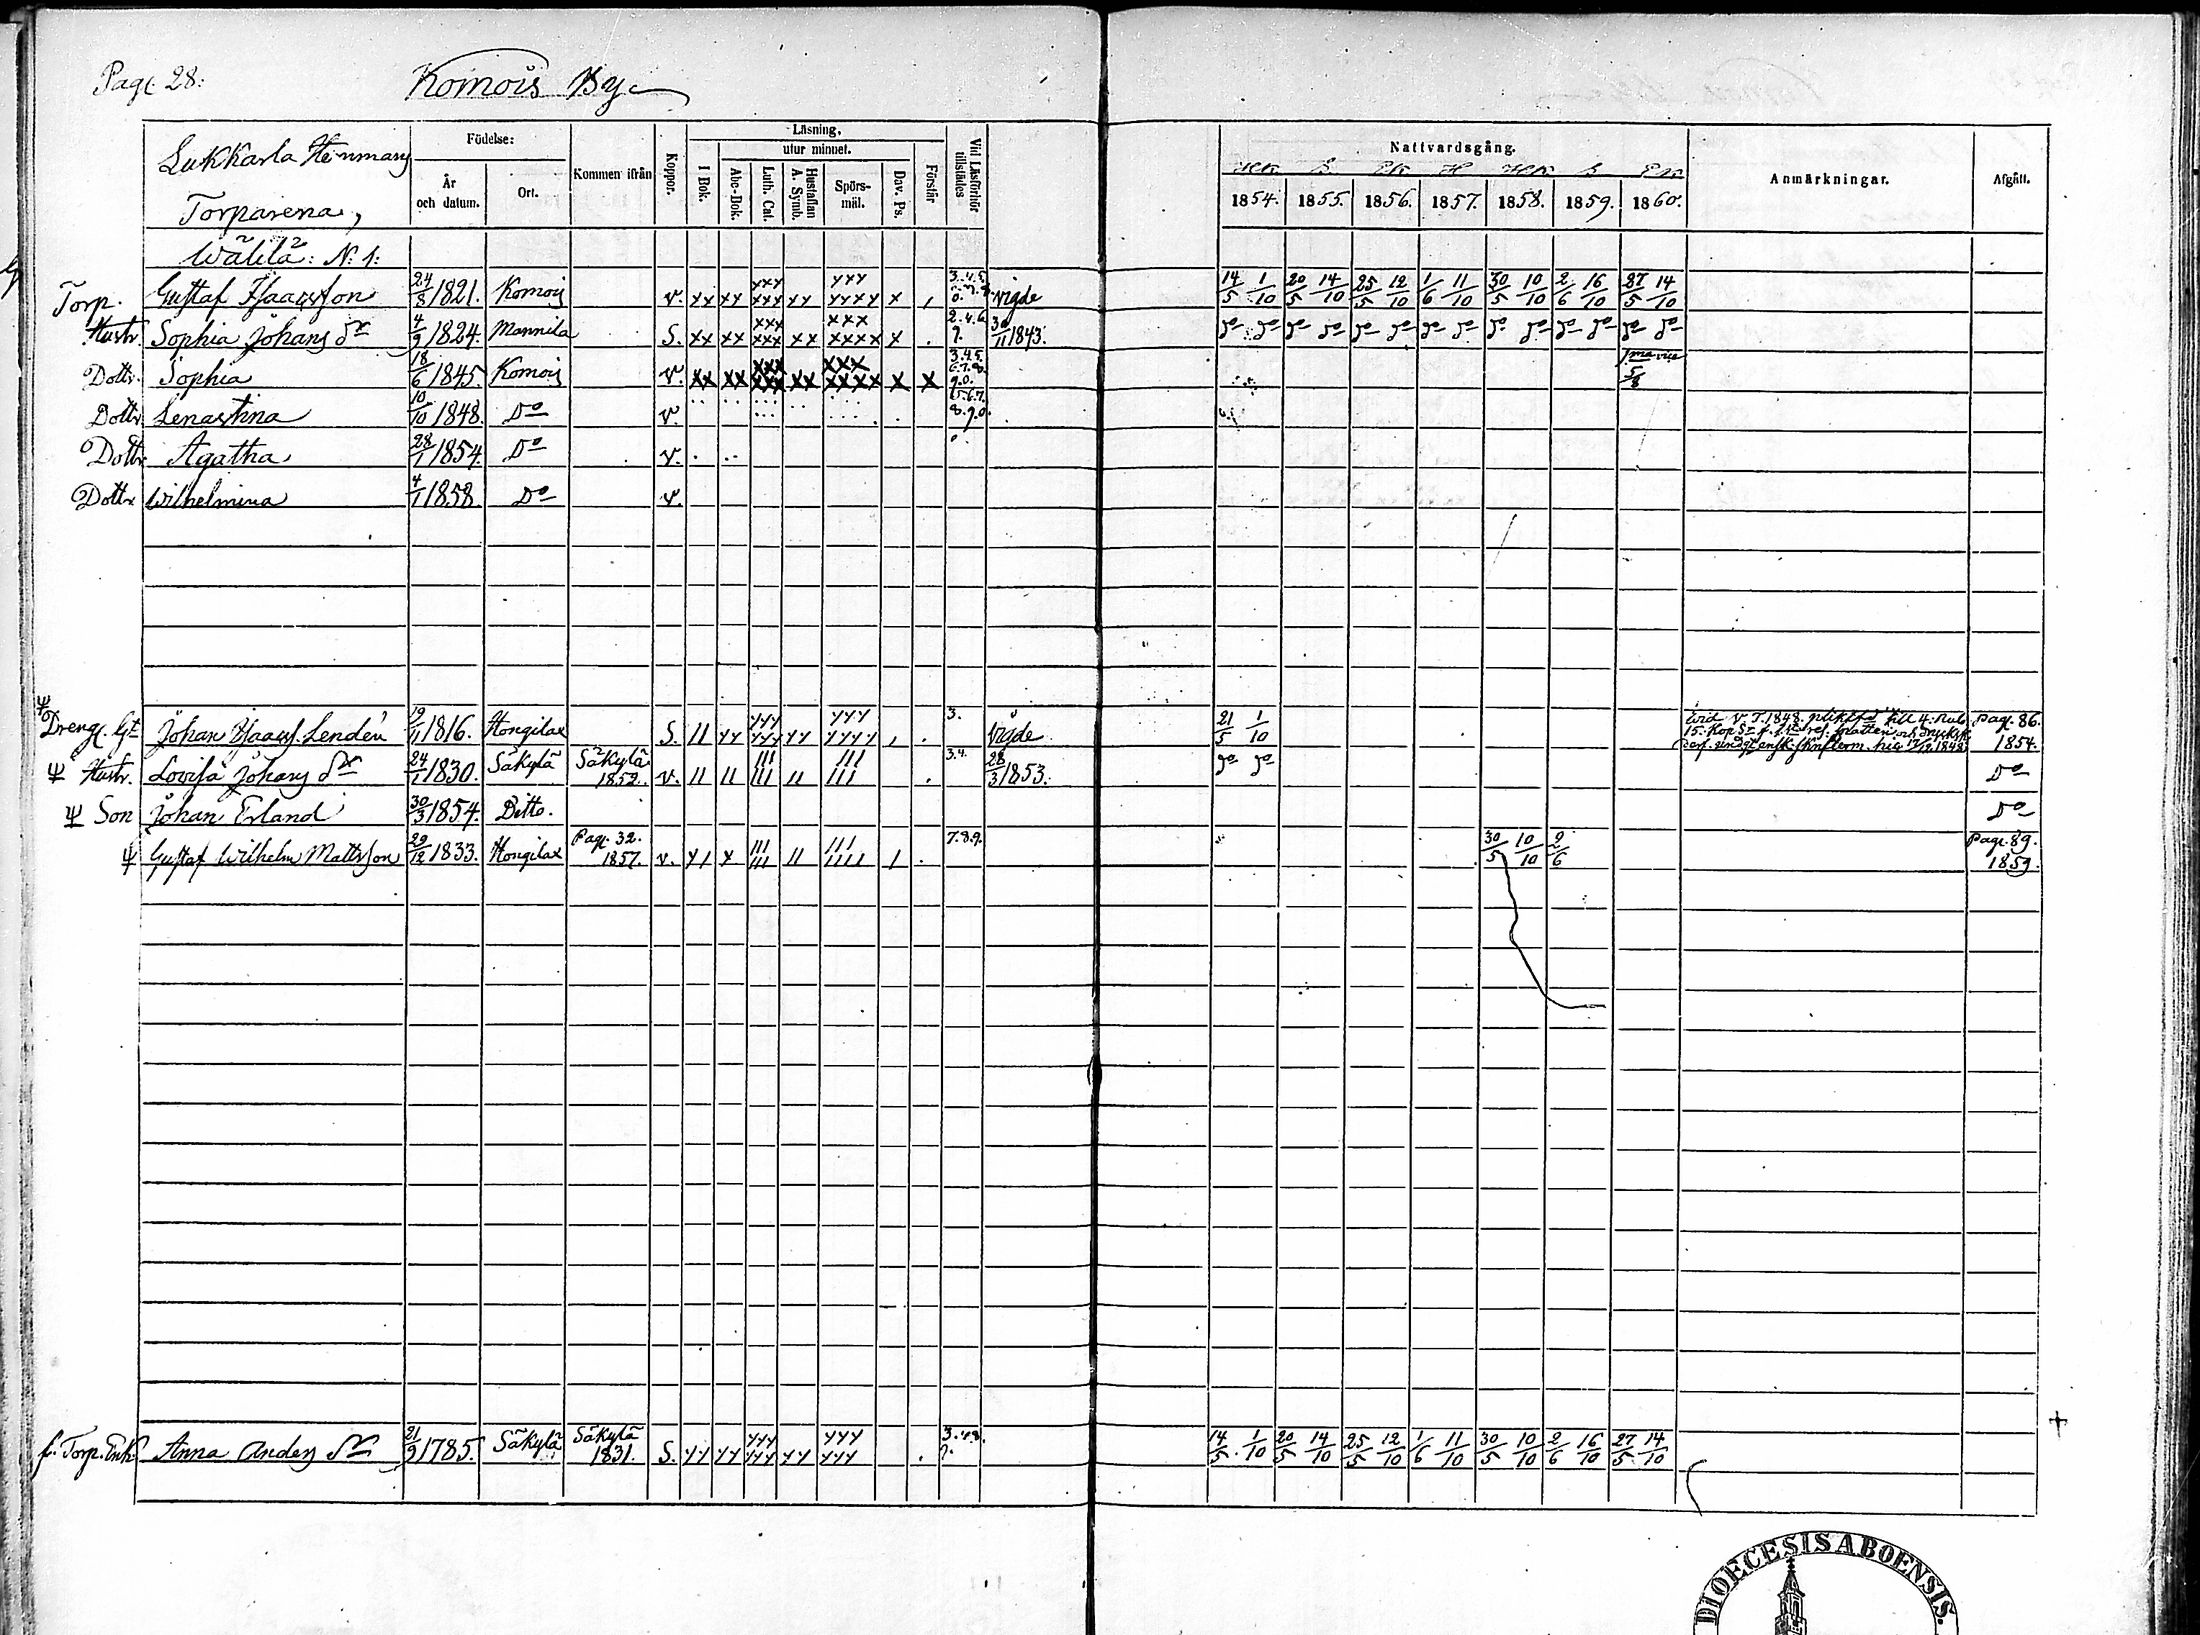 Pag. 28:
Komois By
Lukkarla Hemmans
Torparena,
Födelse:
År och datum.
Ort.
Kommen ifrån
Koppor.
Läsning.
I Bok.
utur minnet.
Abc-Bok.
Luth. Cat.
Hustaflan A. Symb.
Spörs-mål.
Dav. Ps.
Förstår
Vid Läsförhör tillstädes
Nattvardsgång.
1854. 1855. 1856. 1857. 1858. 1859. 1860.
Anmärkningar.
Afgått.
Wälilä: N. 1:
Torp. Gustaf Isaacsson 24/8 1821. Komois v. xx xx xxx xxx xx xxx xxxx x , 3.4.5. vigde 14/5 1/10 20/5 14/10 25/5 12/10 1/6 11/10 30/5 10/10 2/6 16/10 27/5 14/10
Hustr. Sophia Johans dr 4/9 1824. Mannila S. xx xx xxx xxx xx xxx xxxx x . 2.4.6. 9. 30/11 1843. Do Do Do Do Do Do Do Do Do Do Do Do Do Do
Dottr. Sophia 18/6 1845. Komois v. xx xx xxx xxx xx xxx xxxx x x 3.4.5. 6.7.8. 9.0. 1ma vice 5/8
Dottr. Lenastina 10/10 1848. Do v. 5.6.7. 8.9.0.
Dottr Agatha 28/1 1854. Do v. . .. 0.
Dottr. Wilhelmina 4/1 1858. Do v.
Dreng. Gt Johan Isaacs. Lendén 19/11 1816. Hongilax S. II xx xxx xxx xx xxx xxxx , . 3. vigde 21/5 1/10 Pag. 86. 1854.
Hustr. Lovisa Johans dr 24/1 1830. Säkylä Säkylä 1852. v. II II III III II III III . 3.4. 28/3 1853. Do Do Do
Son Johan Erland 30/3 1854. Ditto. Do
Gustaf Wilhelm Mattsson 29/12 1833. Hongilax Pag. 32. 1857. v. xI x III III II III IIII I . 7.8.9. 30/5 10/10 2/6 Pag. 89. 1859.
f. Torp. Enk. Anna Anders dr 21/9 1785. Säkylä Säkylä 1831. S. xx xx xxx xxx xx xxx xxx . 3.4.8. 9. 14/5 1/10 20/5 14/10 25/5 12/10 1/6 11/10 30/5 10/10 2/6 16/10 27/5 14/10
DIOECESIS ABOENSIS.